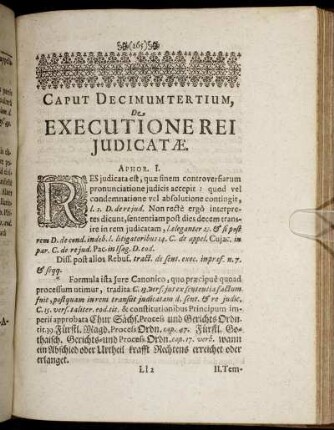 (265)
CAPUT DECIMUMTERTIUM,
De
EXECUTIONE REI
JUDICATÆ.
APHOR. I.
RES judicata est, quæ finem controversiarum
pronunciatione judicis accepit: quod vel
condemnatione vel absolutione contingit,
l. 1. D. de re jud. Non rectè ergò interpre-
tes dicunt, sententiam post dies decem trans-
ire in rem judicatam, l. eleganter 23. & si post
rem D. de cond. indeb. l. litigatoribus 14. C. de appel. Cujac. in
par. C. de re jud. Pac. in Isag. D. eod.
Diss. post alios Rebuf. tract. de sent. exec. in præf. n. 7.
& seqq.
Formula ista Jure Canonico, quo præcipuè quoad
processum utimur, tradita C. 13. vers. jus ex sententia factum
fuit, postquam in rem transiit judicatam d. sent. & re judic.
C. 15. vers. taliter. eod. tit. & constitutionibus Principum im-
perii approbata Chur Sächs. Proceß und Gerichts Ordn.
tit. 39. Fürstl. Magd. Proceß Ordn. cap. 47. Fürstl. Go-
thaisch. Gerichts- und Proceß Ordn. cap. 17. verb. wann
ein Abschied oder Urtheil krafft Rechtens erreichet oder
erlanget.
Ll 2 II. Tem-